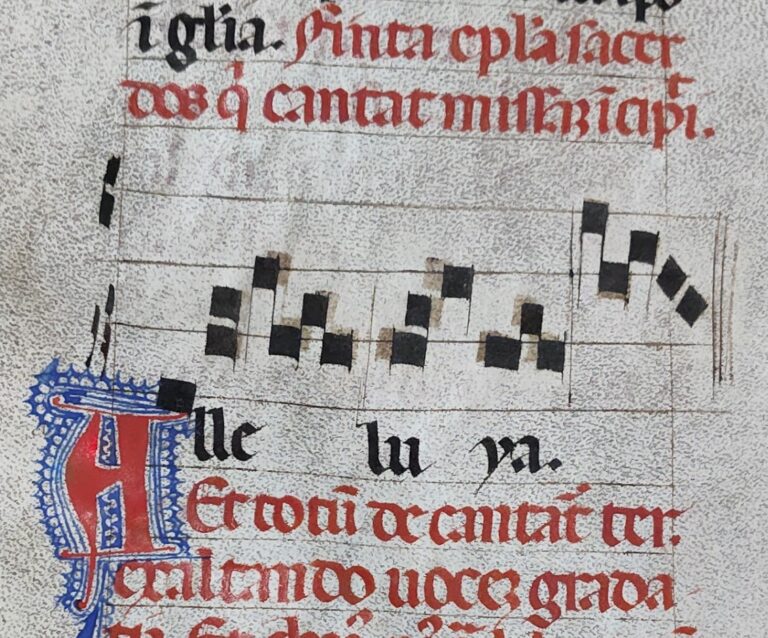 ī gl̄ia. Finita epl̄a sacer
dos q̄ cantat missaꝫ īcipi.
Alle lu ya.
Et totū decantat̄ ter.
exaltando uoceꝫ grada